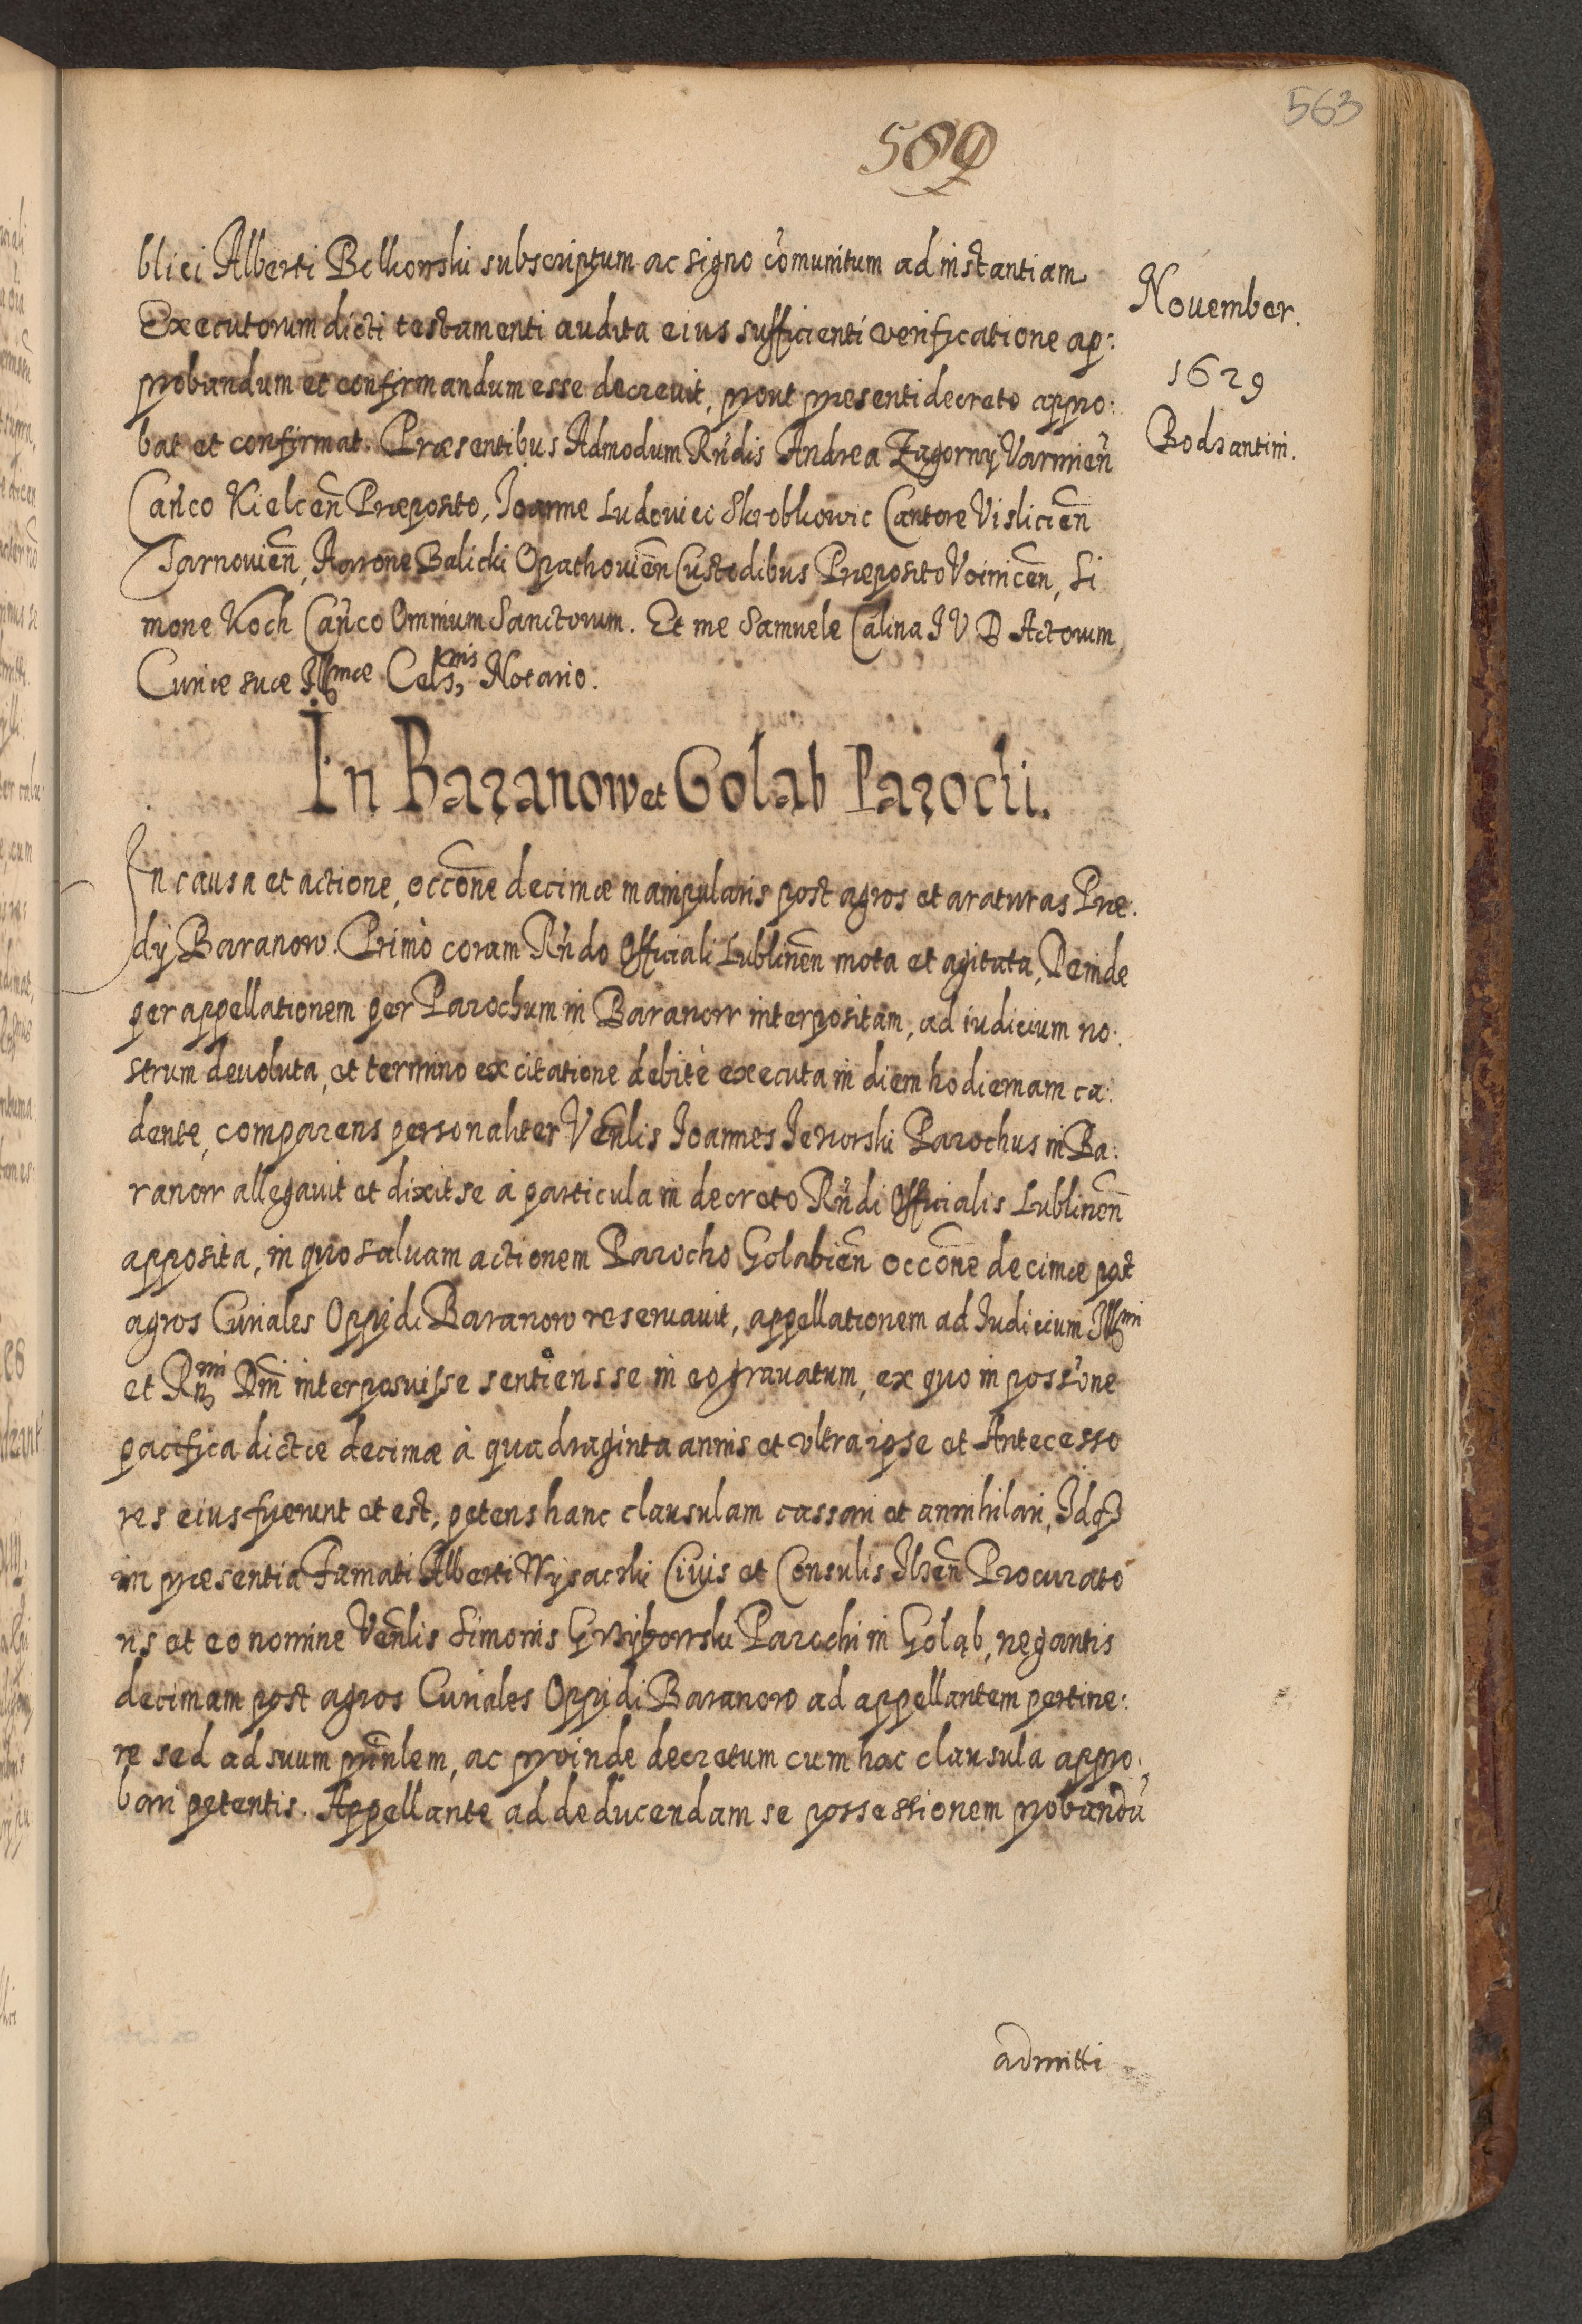 563
589
November.
1629
Bodzantini.
blici Alberti Belkowski subscriptum ac signo cōmunitum ad instantiam
Executorum dicti testamenti audita eius sufficienti verificatione ap:
probandum et confirmandum esse decrevit, prout præsenti decreto appro:
bat et confirmat. Præsentibus Admodum Rndis Andrea Zagorny Varmien̄
Can̄co Kielcen̄ Præposito, Joanne Ludovici Skrobkowic Cantore Vislicien̄
Tarnovien̄, Aarone Balicki Opathovien̄ Custodibus Præposito Voinicen̄, Si
mone Koch Can̄co Omnium Sanctorum. Et me Samuele Calina I V D Actorum
Curiæ suæ Illmæ Cels, nis Notario.
In Baranow et Golab Parochi.
In causa et actione, occōne decimæ manipularis post agros et araturas Præ:
dij Baranow. Primò coram Rndo Officiali Lublinen̄ mota et agitata, Deinde
per appellationem per Parochum in Baranow interpositam, ad iudicium no:
strum devoluta, et termino ex citatione debitè executa in diem hodiernam ca:
dente, comparens personaliter Venlis Joannes Jeworski Parochus in Ba:
ranow allegavit et dixit se à particula in decreto Rndi Officialis Lublinen̄
apposita, in quo salvam actionem Parocho Golabien̄ occōne decimæ post
agros Curiales Oppidi Baranow reservavit, appellationem ad Iudicium Illmi
et Rnmi Dni interposuisse sentiens se in eo gravatum, ex quo in poss'one
pacifica dictæ decimæ à quadraginta annis et ultra ipse et Antecesso
res eius fuerunt et est, petens hanc clausulam cassari et annihilari, Idq3
in præsentia Famati Alberti Wysacki Civis et Consulis Ilzen̄ Procurato
ris et eo nomine Venlis Simonis Grzybowski Parochi in Goląb, negantis
decimam post agros Curiales Oppidi Baranow ad appellantem pertine:
re sed ad suum prinlem, ac proinde decretum cum hac clausula appro:
bari petentis. Appellante ad deducendam se possessionem probandū
admitti